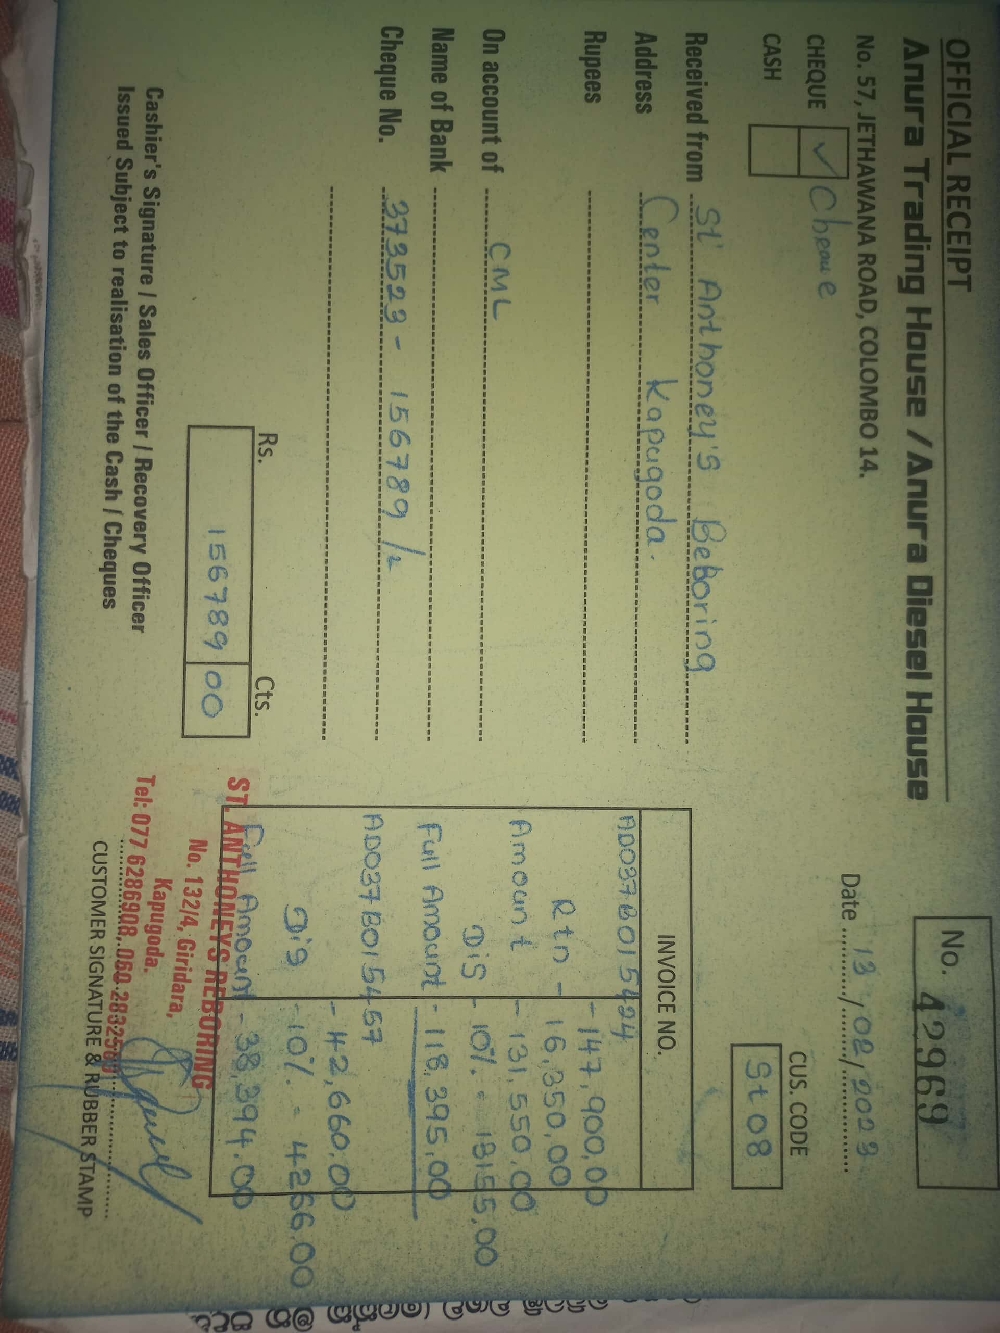 OFFICIAL RECEIPT
Anura Trading House / Anura Diesel House
No. 57, JETHAWANA ROAD, COLOMBO 14.
No. 42969
CHEQUE ✓ Cheque
CASH
Date 13/02/2023
CUS. CODE
St 08
Received from St' Anthoney's Reboring
Address Center Kapugoda.
Rupees
On account of CML
Name of Bank
Cheque No. 373523 - 156789/-
Rs. Cts.
156789 00
Cashier's Signature / Sales Officer / Recovery Officer
Issued Subject to realisation of the Cash / Cheques
INVOICE NO.
AD037B015424
- 147,900,00
Rtn - 16,350,00
Amount - 131,550,00
Dis - 10% - 13155,00
Full Amount - 118,395,00
AD037B015457
- 42,660.00
Dis - 10%. - 4266.00
Full Amount - 38,394.00
ST. ANTHONEYS REBORING
No. 132/4, Giridara,
Kapugoda.
Tel: 077 6286908, 060 283250
CUSTOMER SIGNATURE & RUBBER STAMP